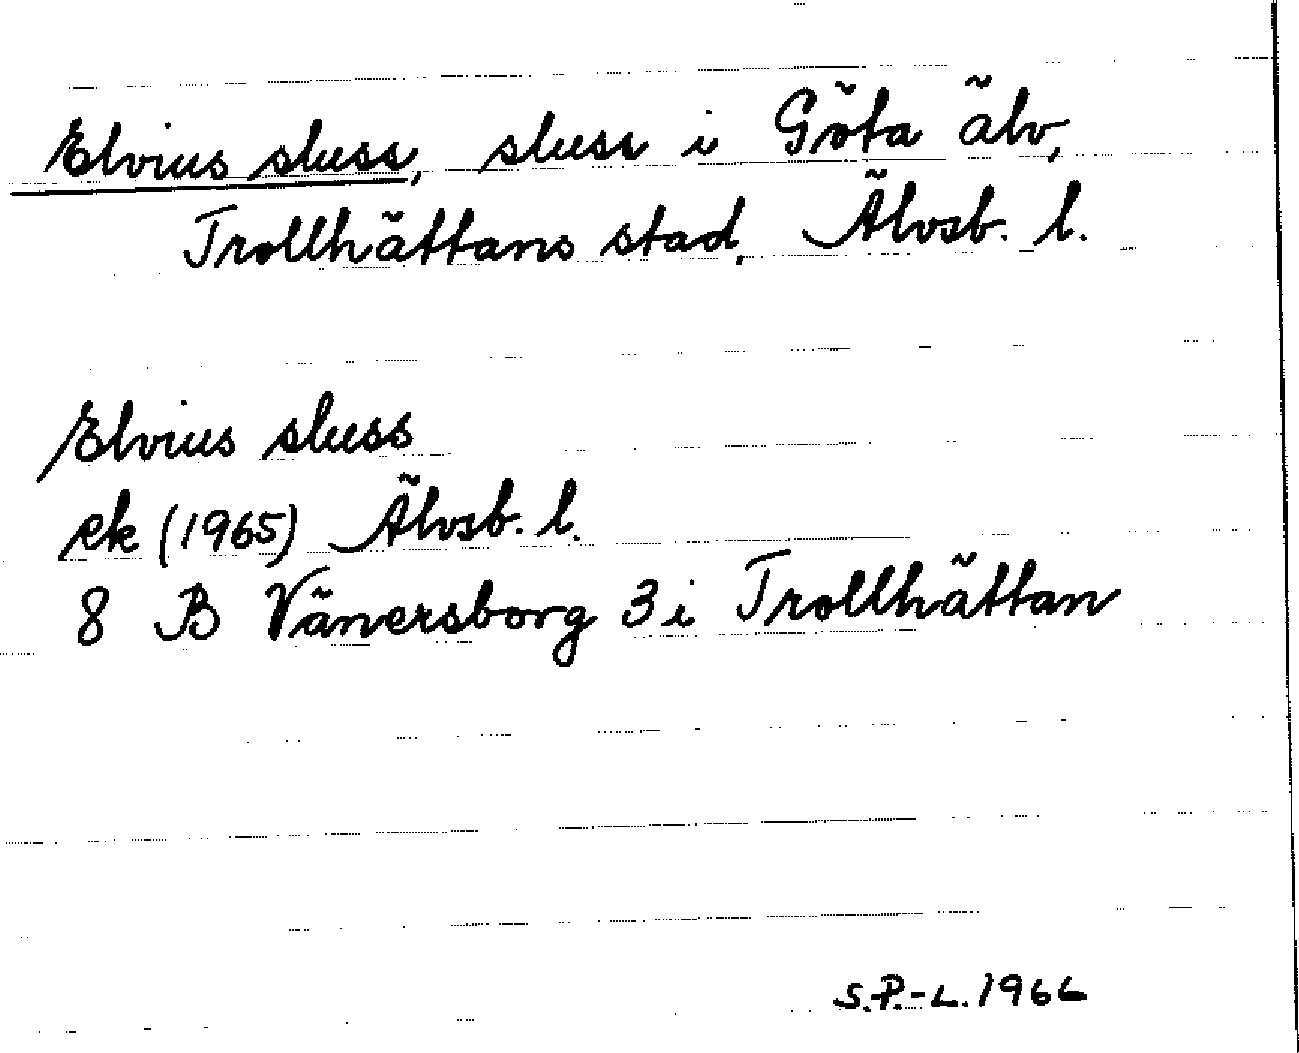 Elvius sluss, sluss i Göta älv,
Trollhättans stad, Älvsb. l.
Elvius sluss
ek (1965) Älvsb. l.
8 B Vänersborg 3 i Trollhättan
S.P.-L. 1966